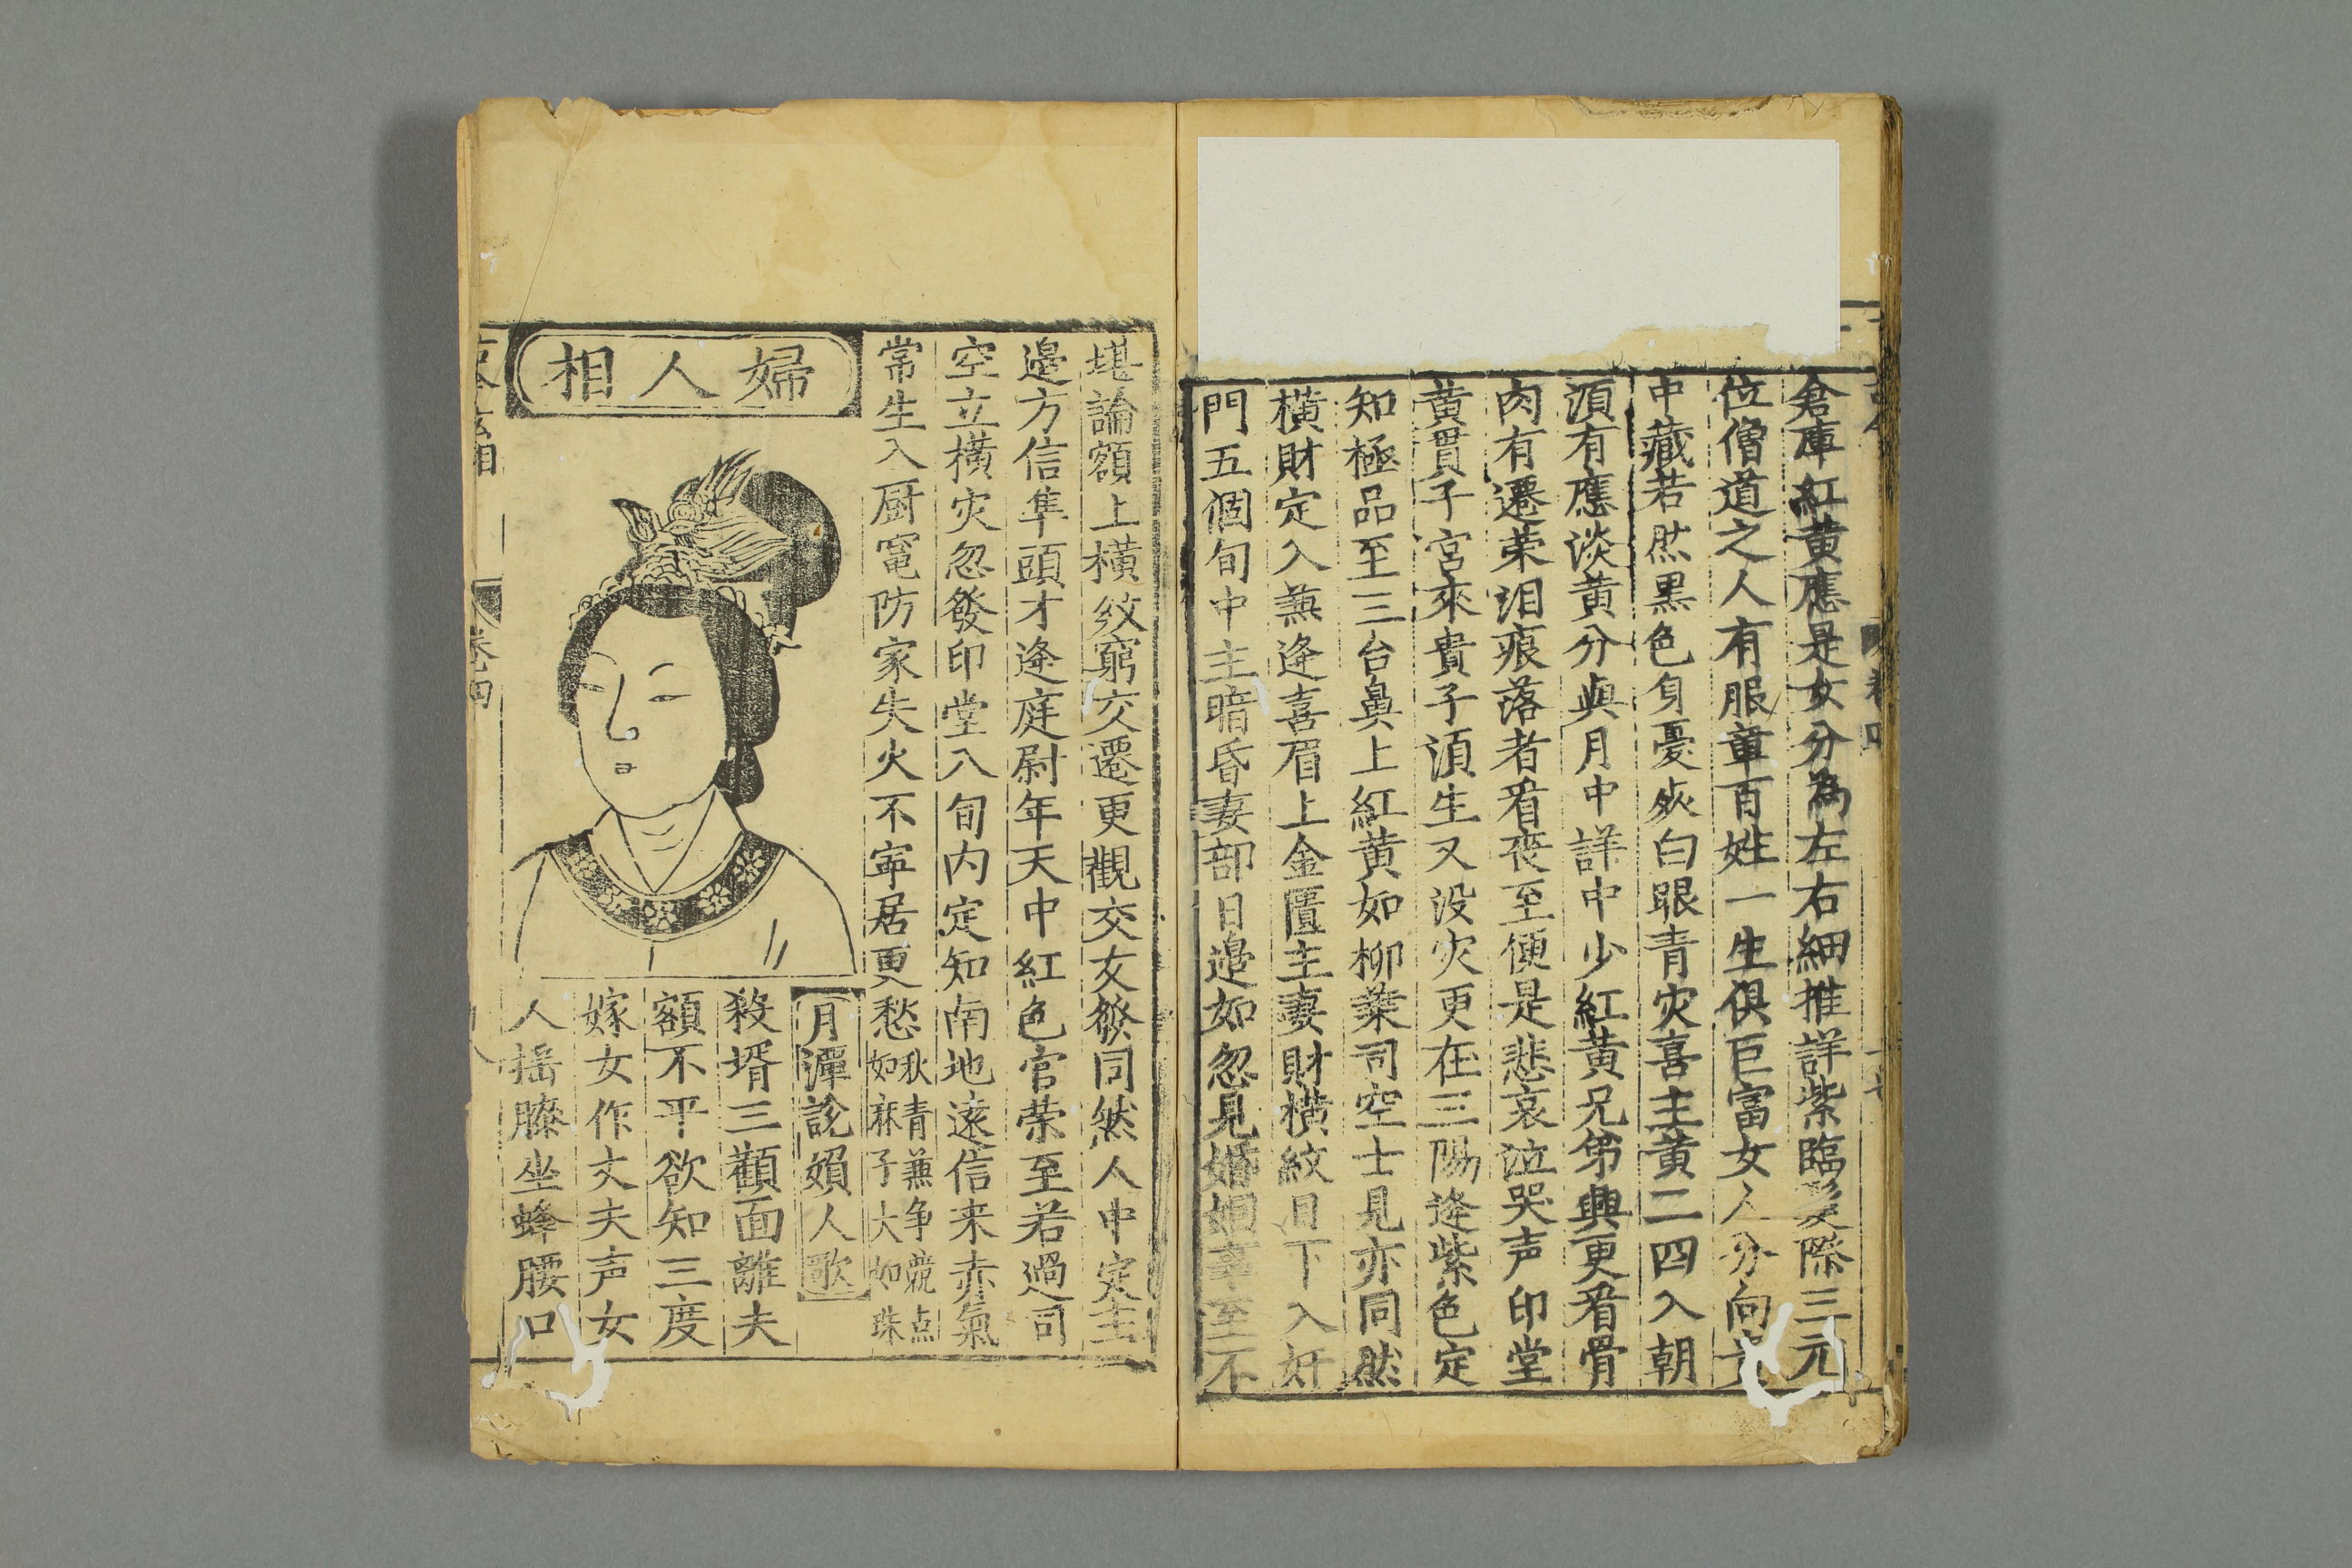 倉庫紅黃應是女分為左右細推詳紫臨髮際三元
位僧道之人有服章百姓一生俱巨富女人分向
中藏若然黑色身憂疾白眼青灾喜主黃二四入朝
須有應淡黃分與月中詳中少紅黃兄弟興更看骨
肉有遷荣泪痕落者看丧至便是悲哀泣哭声印堂
黃貫子宮來貴子須生又没灾更在三陽逄紫色定
知極品至三台鼻上紅黃如柳葉司空士見亦同然
橫財定入無逄喜眉上金匱主妻財橫紋目下入奸
門五個旬中主暗昏妻部日邉如忽見婚姻事至不
堪論額上橫紋窮交遷更觀交友發同然人中定主
邉方信準頭才逄庭尉年天中紅色官荣至若過司
空立橫灾忽發印堂八旬内定知南地遠信来赤氣
常生入厨竃防家失火不寜居更愁
秋青無争競点
如麻子大如珠
婦人相
月潭說婦人歌
殺壻三顴面離夫
額不平欲知三度
嫁女作丈夫声女
人摇膝坐蜂腰口
卷四